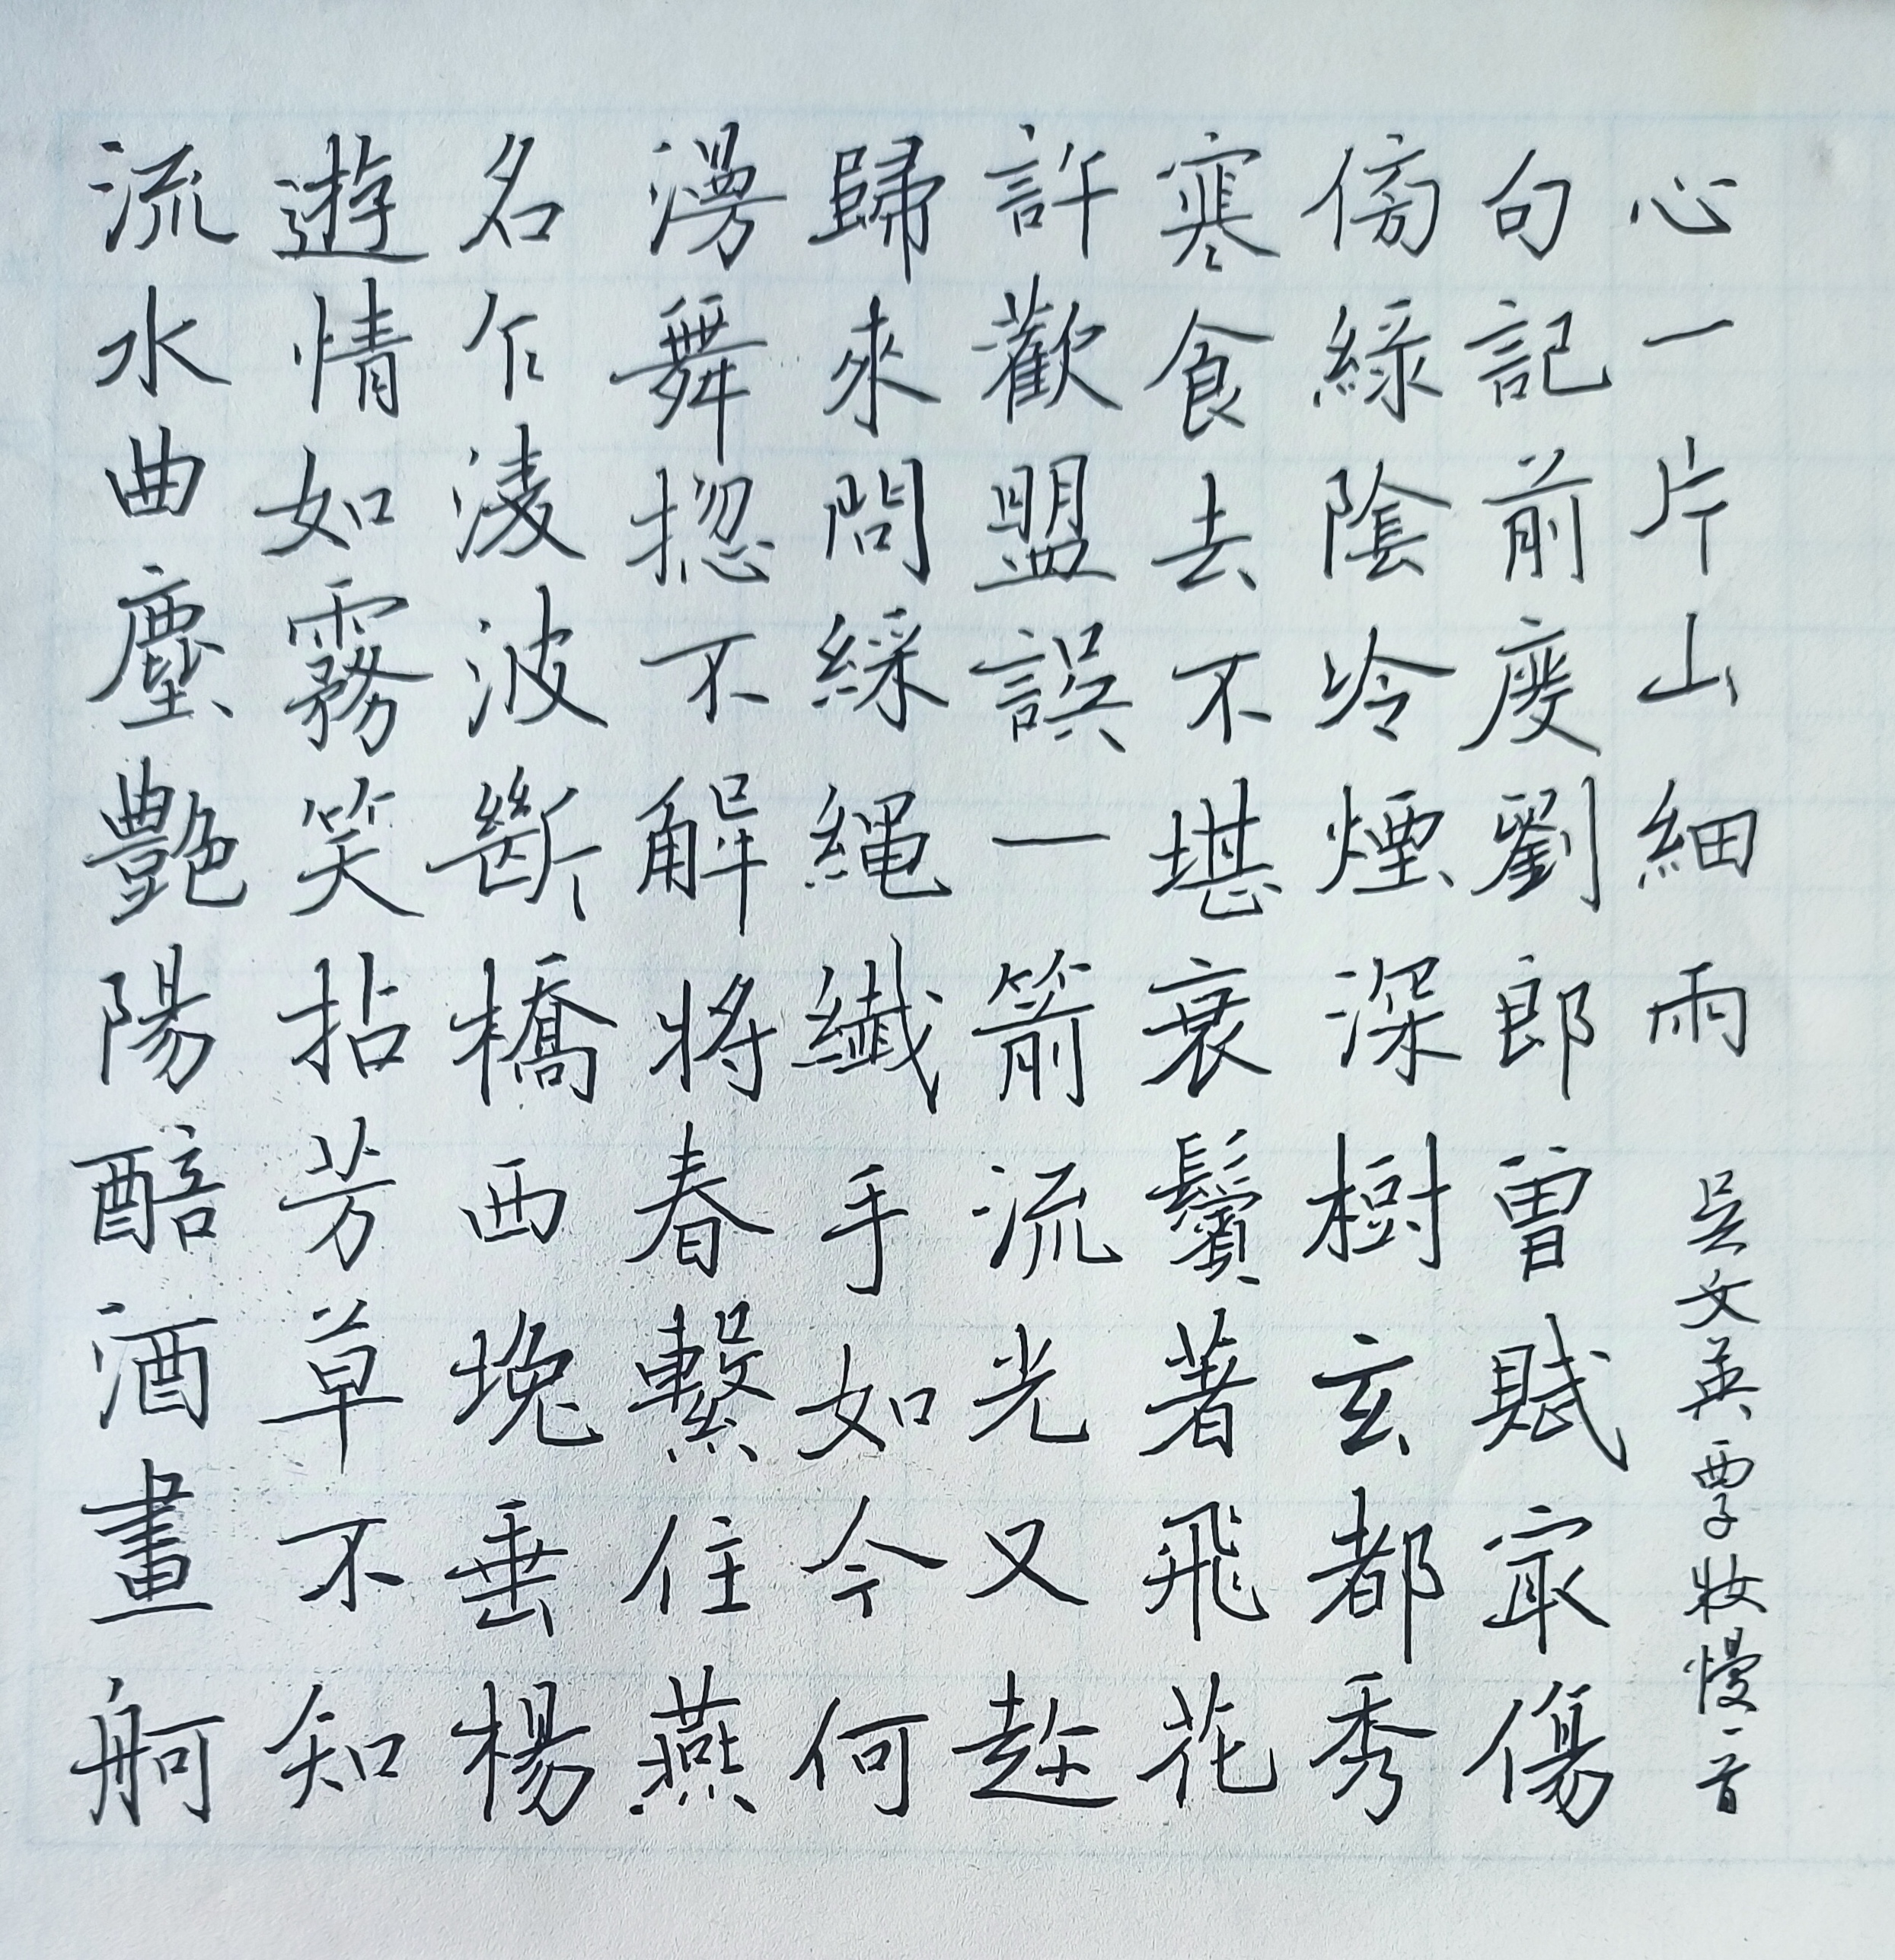 流水曲塵艷陽醅酒畫舸
遊情如霧笑拈芳草不知
名乍淩波斷橋西堍垂楊
漫舞揔不解將春繫住燕
歸來問綵縄纖手如今何
許歡盟誤一箭流光又趂
寒食去不堪衰鬢著飛花
傍綠陰冷煙深樹玄都秀
句記前度劉郎曾賦冣傷
心一片山細雨
吳文英西子妝慢一首